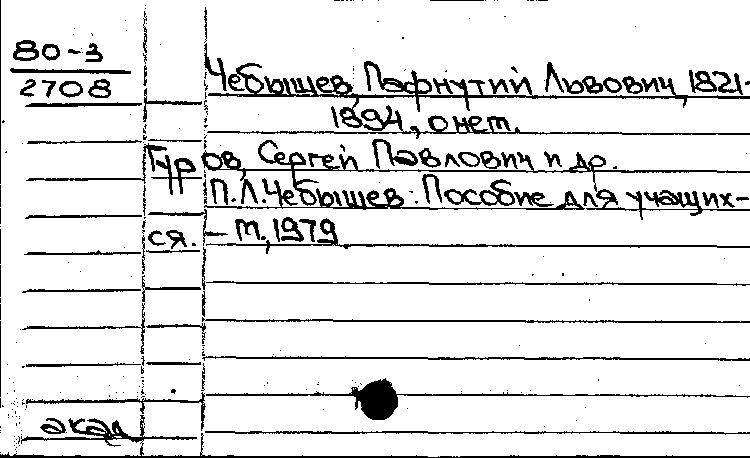 80-3
2708
Чебышев, Пафнутий Львович, 1821-
1894, о нем.
Гуров, Сергей Павлович и др.
П.Л.Чебышев: Пособие для учащих-
ся. – М., 1979.
акад